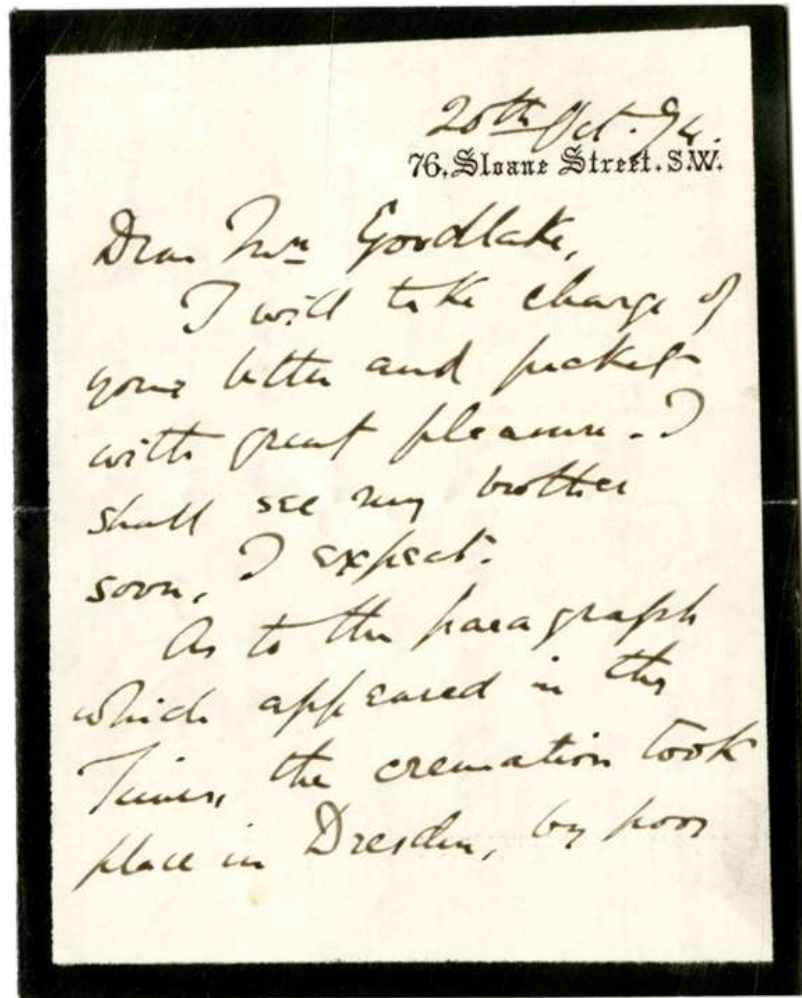 20th Oct. 74.
76. Sloane Street. S.W.
Dear Mrs Goodlake,
I will take charge of
your letter and packet
with great pleasure. I
shall see my brother
soon, I expect.
As to the paragraph
which appeared in the
Times, the cremation took
place in Dresden, by poor